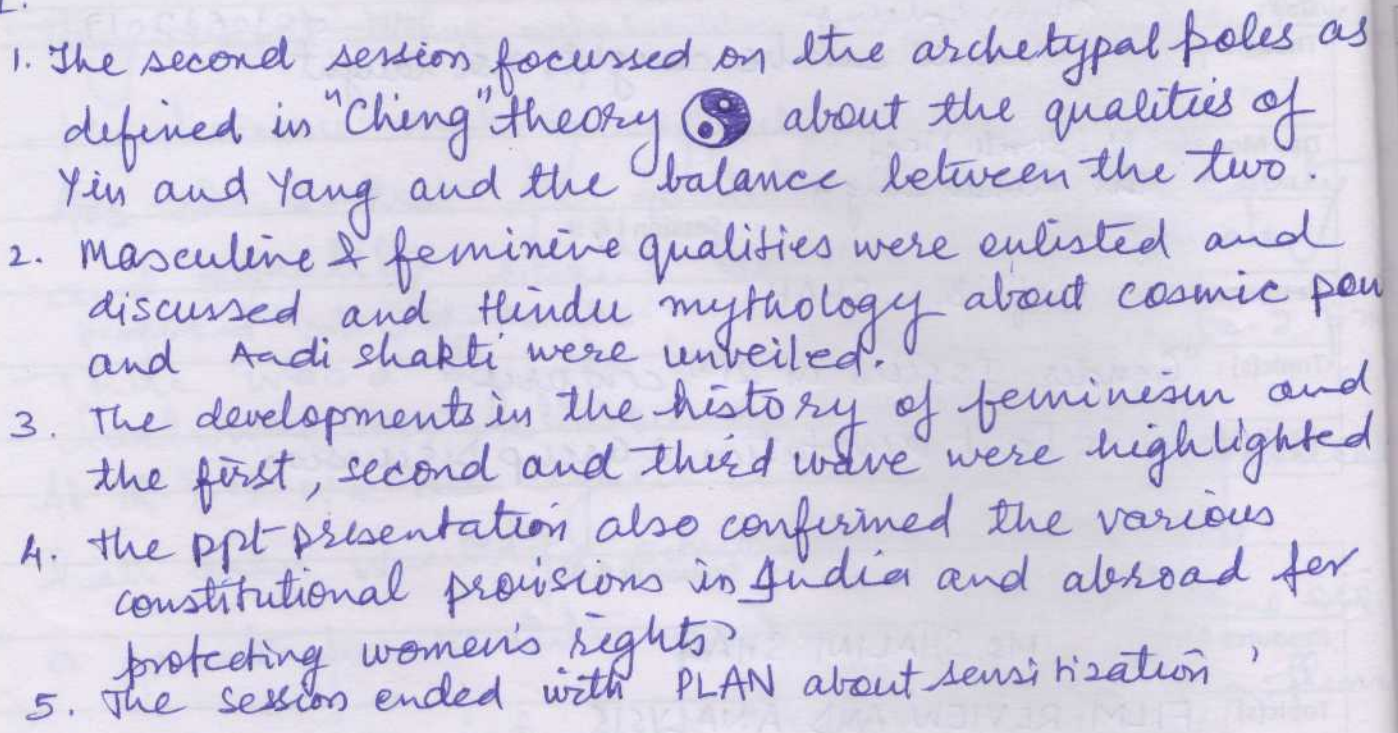 1. The second session focussed on the archetypal poles as
defined in "Ching" theory ☯ about the qualities of
Yin and Yang and the balance between the two.
2. Masculine & feminine qualities were enlisted and
discussed and Hindu mythology about cosmic pow
and Aadi shakti were unveiled.
3. The developments in the history of feminism and
the first, second and third wave were highlighted
4. The ppt presentation also confirmed the various
constitutional provisions in India and abroad for
protecting women's rights.
5. The session ended with PLAN about sensitization